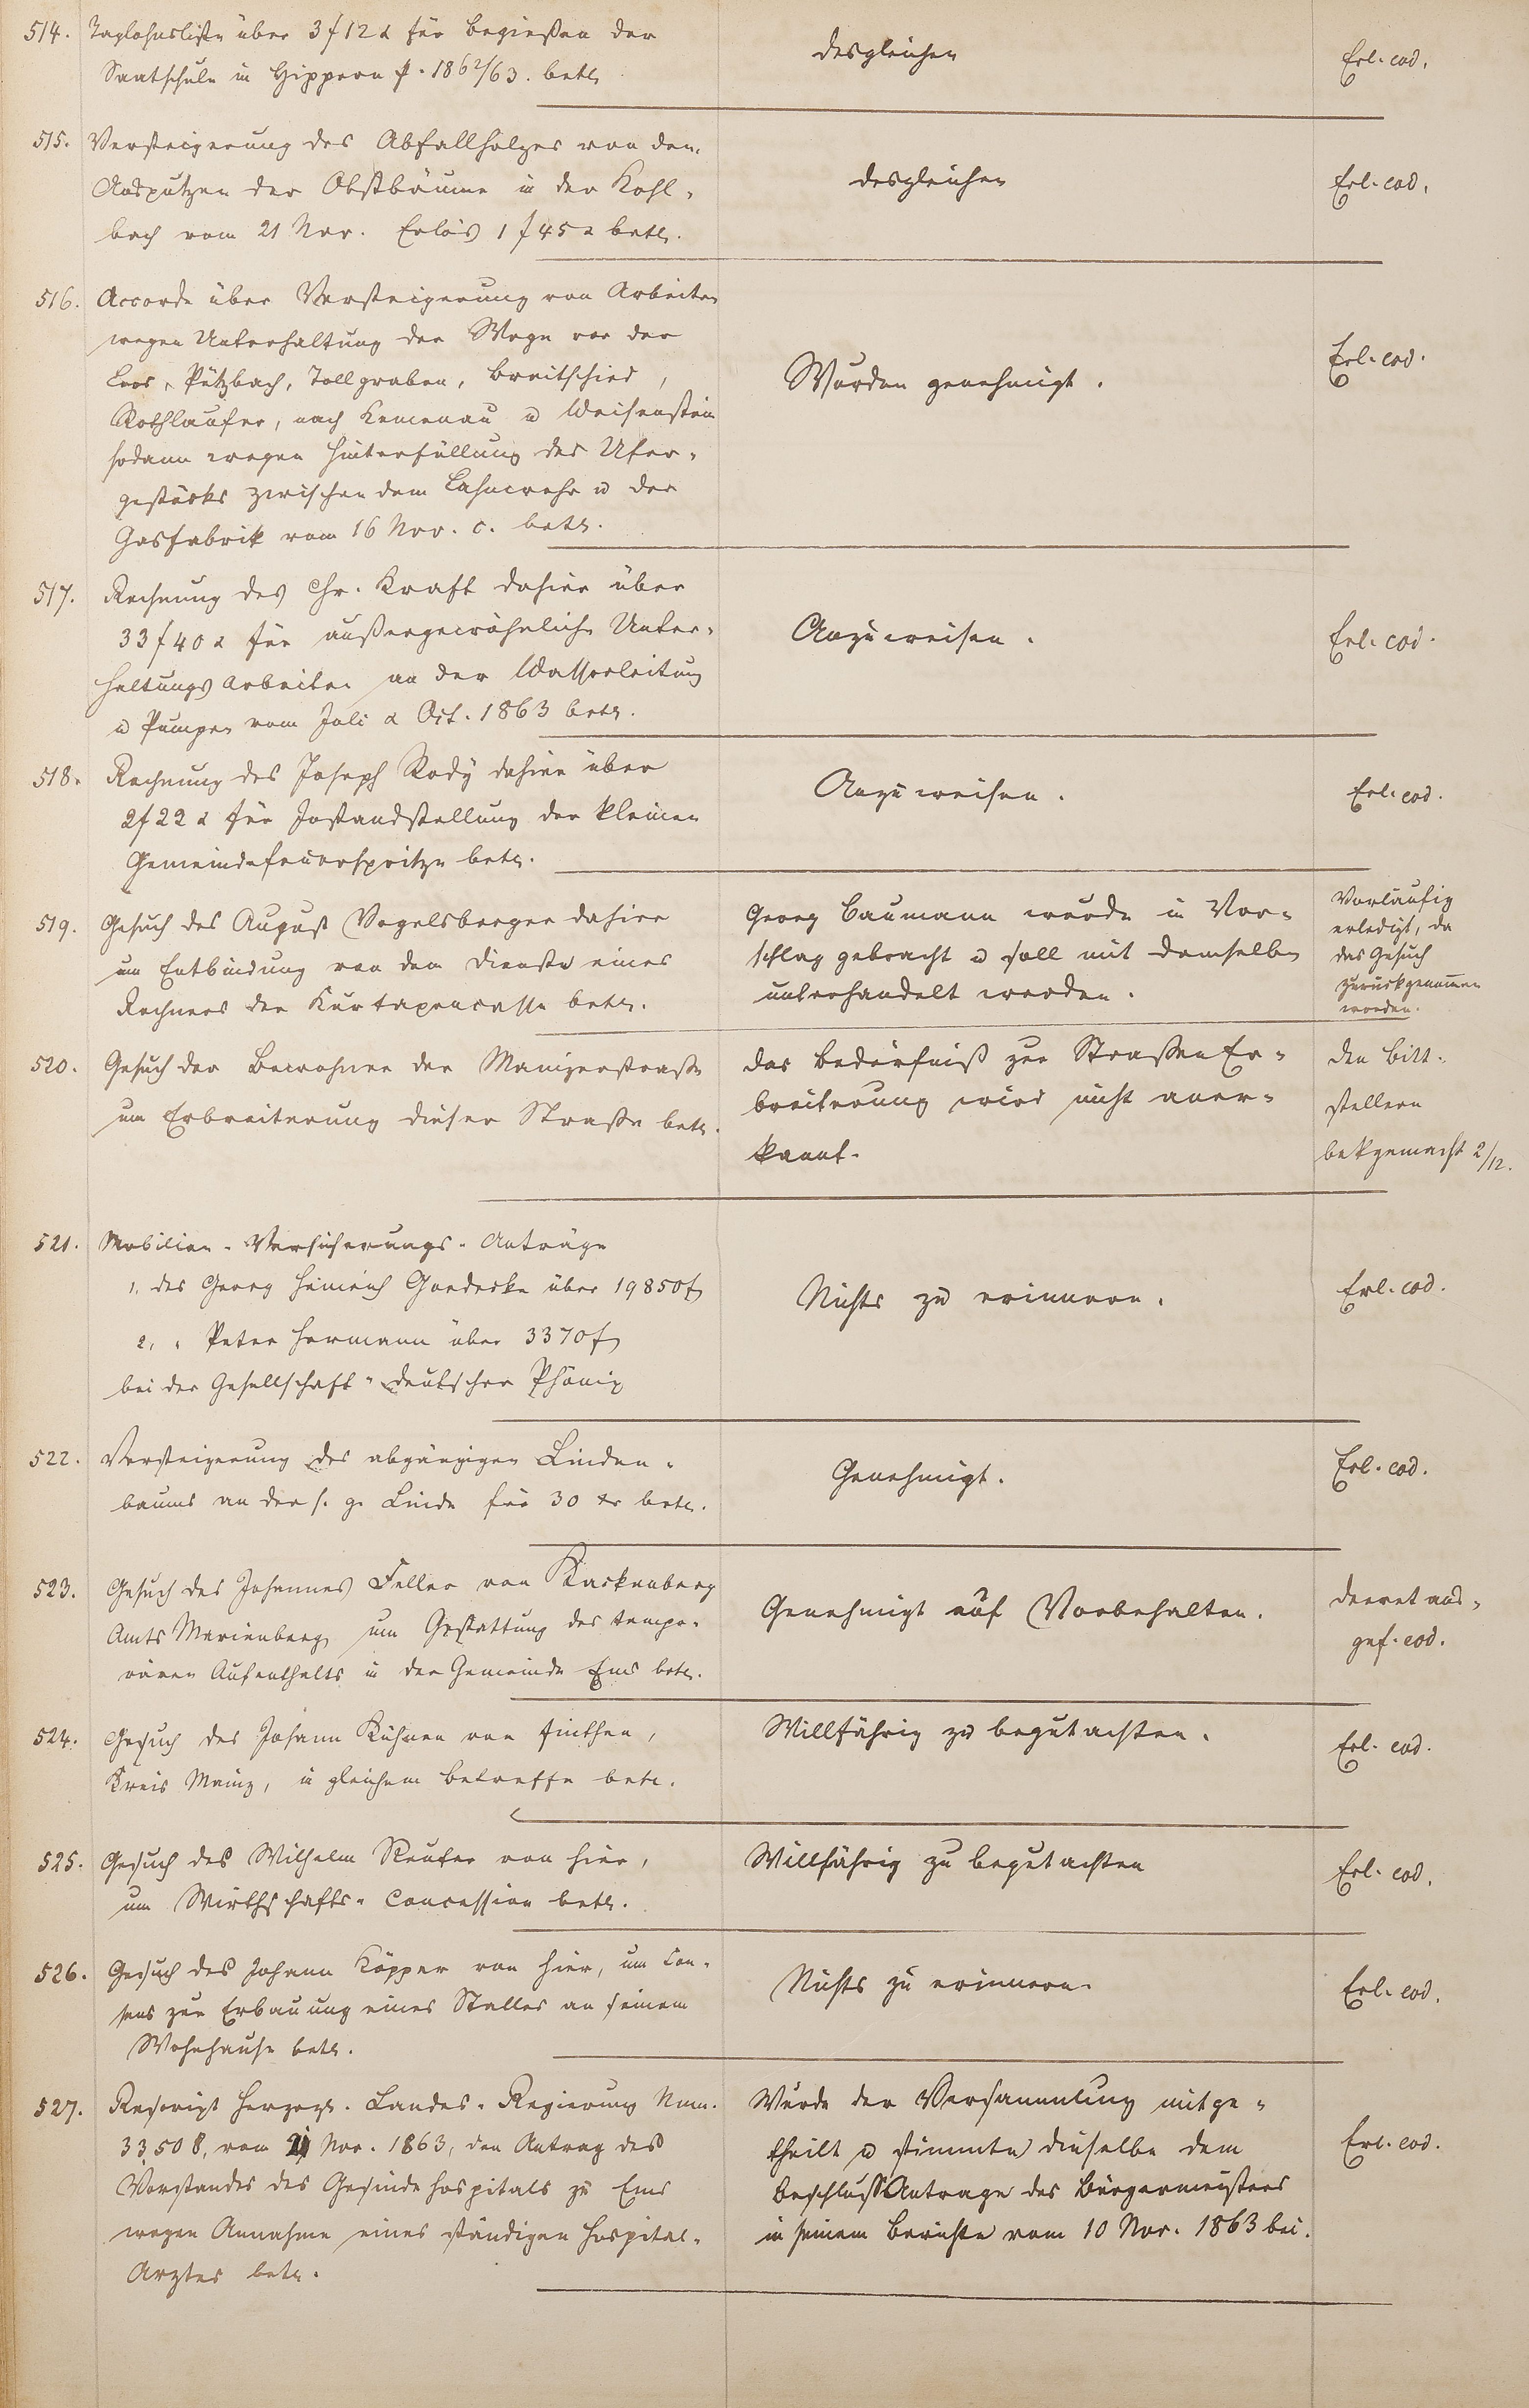 514. Taglohnsliste über 3 f 12 x für Begießen der
Saatschule in Hippern p. 1862/63. betr.
desgleichen
Erl. eod.
515. Versteigerung des Abfallholzes von dem
Ausputzen der Obstbäume in der Kohl-
bach vom 21 Nov. Erlös 1 f 45 x betr.
desgleichen
Erl. eod.
516. Accorde über Versteigerung von Arbeiten
wegen Unterhaltung der Wege vor der
Loos, Pützbach, Tollgraben, Breitschied,
Rothlaufer, nach Kemenau u Weisenstein
sodann wegen Hinterfüllung des Ufer-
gestücks zwischen dem Lahnwehr u der
Gasfabrik vom 16 Nov. c. betr.
Wurden genehmigt.
Erl. eod.
517. Rechnung des Chr. Kraft dahier über
33 f 40 x für außergewöhnliche Unter-
haltungs Arbeiten an der Wasserleitung
u Pumpen vom Juli & Oct. 1863 betr.
Anzuweisen.
Erl. eod.
518. Rechnung des Joseph Rody dahier über
2 f 22 x für Instandstellung der kleinen
Gemeindefeuerspritze betr.
Anzuweisen.
Erl. eod.
519. Gesuch des August Vogelsberger dahier
um Entbindung von dem Dienste eines
Rechners der Kurtaxencasse betr.
Georg Baumann wurde in Vor-
schlag gebracht u soll mit demselben
unterhandelt werden.
Vorläufig
erledigt, da
das Gesuch
zurückgenommen
worden.
520. Gesuch der Bewohner der Mainzerstraße
um Erbreiterung dieser Straße betr.
Das Bedürfniß zur Straßen Er-
breiterung wird nicht aner-
kannt.
den Bitt-
stellern
bekgemacht 2/12.
521. Mobiliar-Versicherungs-Anträge
1, des Georg Heinrich Goedecke über 19850 f
2, " Peter Hermann über 3370 f
bei der Gesellschaft "deutscher Phönix
Nichts zu erinnern.
Erl. eod.
522. Versteigerung des abgängigen Linden-
baums an der s. g. Linde für 30 xr betr.
Genehmigt.
Erl. eod.
523. Gesuch des Johannes Feller von Kackenberg
Amts Marienberg um Gestattung des tempo-
rären Aufenthalts in der Gemeinde Ems betr.
Genehmigt auf Vorbehalten.
Decret aus-
gef. eod.
524. Gesuch des Johann Kühnen von Finthen,
Kreis Mainz, in gleichem Betreffe betr.
Willfährig zu begutachten.
Erl. eod.
525. Gesuch des Wilhelm Reuter von hier,
um Wirthschafts-Concession betr.
Willfährig zu begutachten
Erl. eod.
526. Gesuch des Johann Köpper von hier, um Con-
sens zur Erbauung eines Stalles an seinem
Wohnhause betr.
Nichts zu erinnern.
Erl. eod.
527. Rescript Herzogl. Landes-Regierung Num.
33,508, vom 21 Nov. 1863, den Antrag des
Vorstandes des Gesindehospitals zu Ems
wegen Annahme eines ständigen Hospital-
Arztes betr.
Wurde der Versammlung mitge-
theilt u stimmte dieselbe dem
Beschluß Antrage des Bürgermeisters
in seinem Berichte vom 10 Nov. 1863 bei.
Erl. eod.